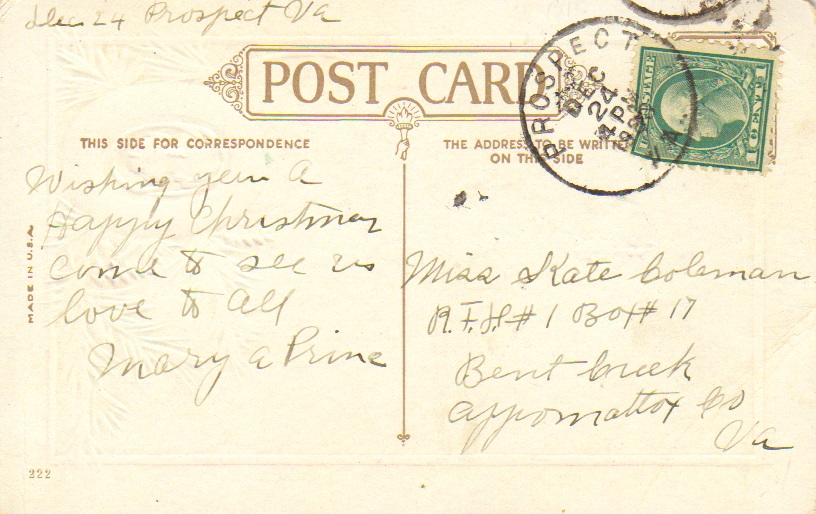 Dec 24 Prospect Va
POST CARD
PROSPECT
DEC
24
4 PM
VA.
U.S. POSTAGE
1
1
THIS SIDE FOR CORRESPONDENCE
THE ADDRESS TO BE WRITTEN
ON THIS SIDE
Wishing you a
Happy Christmas
come to see us
love to all
Mary a Price
Miss Kate Coleman
R.F.D. # 1 Box # 17
Bent Creek
Appomattox Co
Va
MADE IN U.S.A.
222